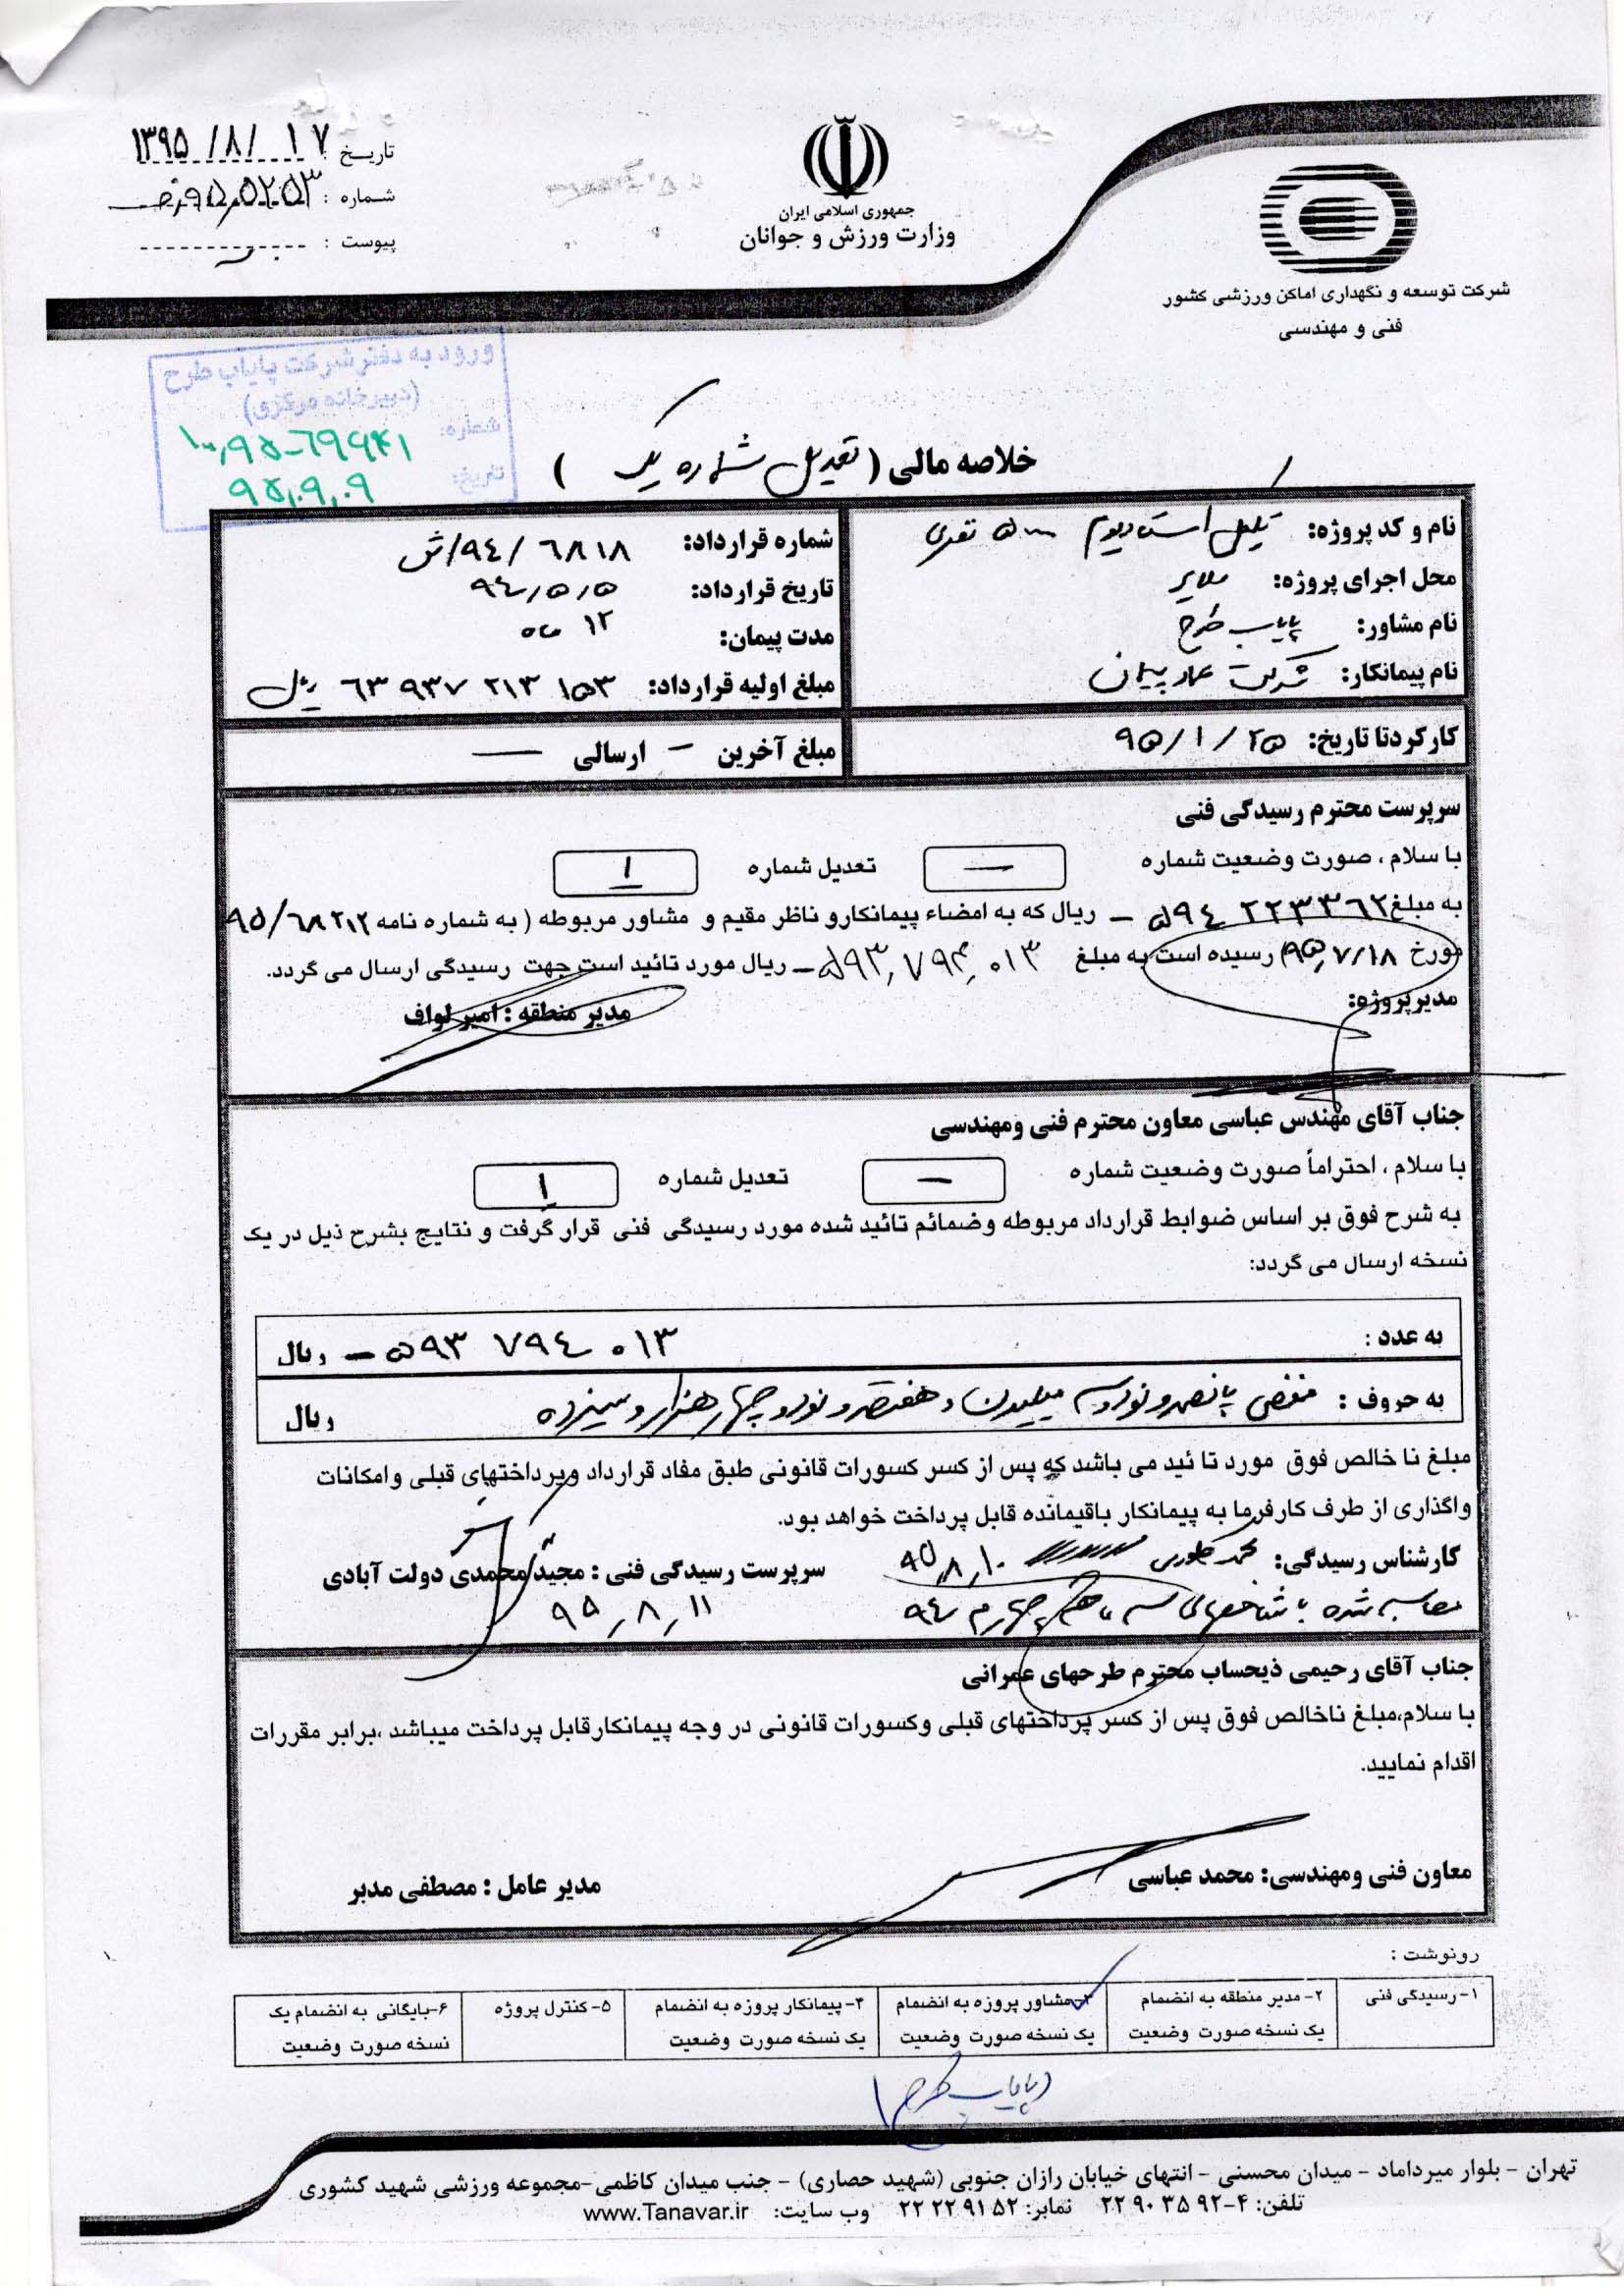 تاریخ : ۱۳۹۵/۸/۱۷
شماره :
پیوست :
جمهوری اسلامی ایران
وزارت ورزش و جوانان
شرکت توسعه و نگهداری اماکن ورزشی کشور
فنی و مهندسی
ورود به دفتر شرکت پایاب طرح
(دبیرخانه مرکزی)
شماره:
تاریخ: ۹۵,۰۹,۰۹
خلاصه مالی ( تعدیل شماره یک )
نام و کد پروژه: تکمیل استادیوم ۵۰۰۰ نفری
محل اجرای پروژه: ملایر
نام مشاور: پایاب طرح
نام پیمانکار: شرکت عماد پیمان
شماره قرارداد: ۶۸۱۸/۹۴/ش
تاریخ قرارداد: ۹۴,۵,۵
مدت پیمان: ۱۲ ماه
مبلغ اولیه قرارداد: ۶۳ ۹۳۷ ۲۱۳ ۱۵۳ ریال
کارکردتا تاریخ: ۹۵/۱/۲۵
مبلغ آخرین – ارسالی —
سرپرست محترم رسیدگی فنی
با سلام ، صورت وضعیت شماره — تعدیل شماره ۱
به مبلغ ۵۹۴ ۲۲۳ ۳۶۲ – ریال که به امضاء پیمانکارو ناظر مقیم و مشاور مربوطه ( به شماره نامه ۹۵/۶۸۲۱۲
مورخ ۹۵,۷/۱۸) رسیده است به مبلغ ۵۹۳,۷۹۴,۰۱۳ – ریال مورد تائید است جهت رسیدگی ارسال می گردد.
مدیرپروژه:
مدیر منطقه : امیر لواف
جناب آقای مهندس عباسی معاون محترم فنی ومهندسی
با سلام ، احتراماً صورت وضعیت شماره — تعدیل شماره ۱
به شرح فوق بر اساس ضوابط قرارداد مربوطه وضمائم تائید شده مورد رسیدگی فنی قرار گرفت و نتایج بشرح ذیل در یک
نسخه ارسال می گردد:
به عدد : ۵۹۳ ۷۹۴ ۰۱۳ – ریال
به حروف : منفی پانصدونودوسه میلیون و هفتصدونودوچهارهزاروسیزده ریال
مبلغ نا خالص فوق مورد تا ئید می باشد که پس از کسر کسورات قانونی طبق مفاد قرارداد وپرداختهای قبلی وامکانات
واگذاری از طرف کارفرما به پیمانکار باقیمانده قابل پرداخت خواهد بود.
کارشناس رسیدگی: محمد ۹۵,۸,۱۰
سرپرست رسیدگی فنی : مجید محمدی دولت آبادی
۹۵,۸,۱۱
محاسبه شده با شاخصهای سه ماهه چهارم ۹۴
جناب آقای رحیمی ذیحساب محترم طرحهای عمرانی
با سلام،مبلغ ناخالص فوق پس از کسر پرداختهای قبلی وکسورات قانونی در وجه پیمانکارقابل پرداخت میباشد ،برابر مقررات
اقدام نمایید.
معاون فنی ومهندسی: محمد عباسی
مدیر عامل : مصطفی مدبر
رونوشت :
۱-رسیدگی فنی
۲- مدیر منطقه به انضمام
یک نسخه صورت وضعیت
۳-مشاور پروزه به انضمام
یک نسخه صورت وضعیت
۴- پیمانکار پروزه به انضمام
یک نسخه صورت وضعیت
۵- کنترل پروژه
۶-بایگانی به انضمام یک
نسخه صورت وضعیت
(پایاب طرح)
تهران - بلوار میرداماد - میدان محسنی - انتهای خیابان رازان جنوبی (شهید حصاری) - جنب میدان کاظمی-مجموعه ورزشی شهید کشوری
تلفن: ۴-۹۲ ۳۵ ۹۰ ۲۲ نمابر: ۵۲ ۹۱ ۲۲ ۲۲ وب سایت: www.Tanavar.ir